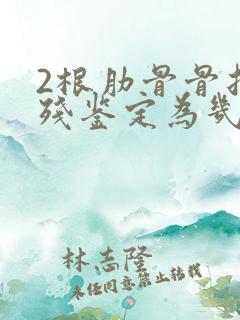 2根肋骨骨折
残鉴定为几
林志隆
未经同意禁止转载